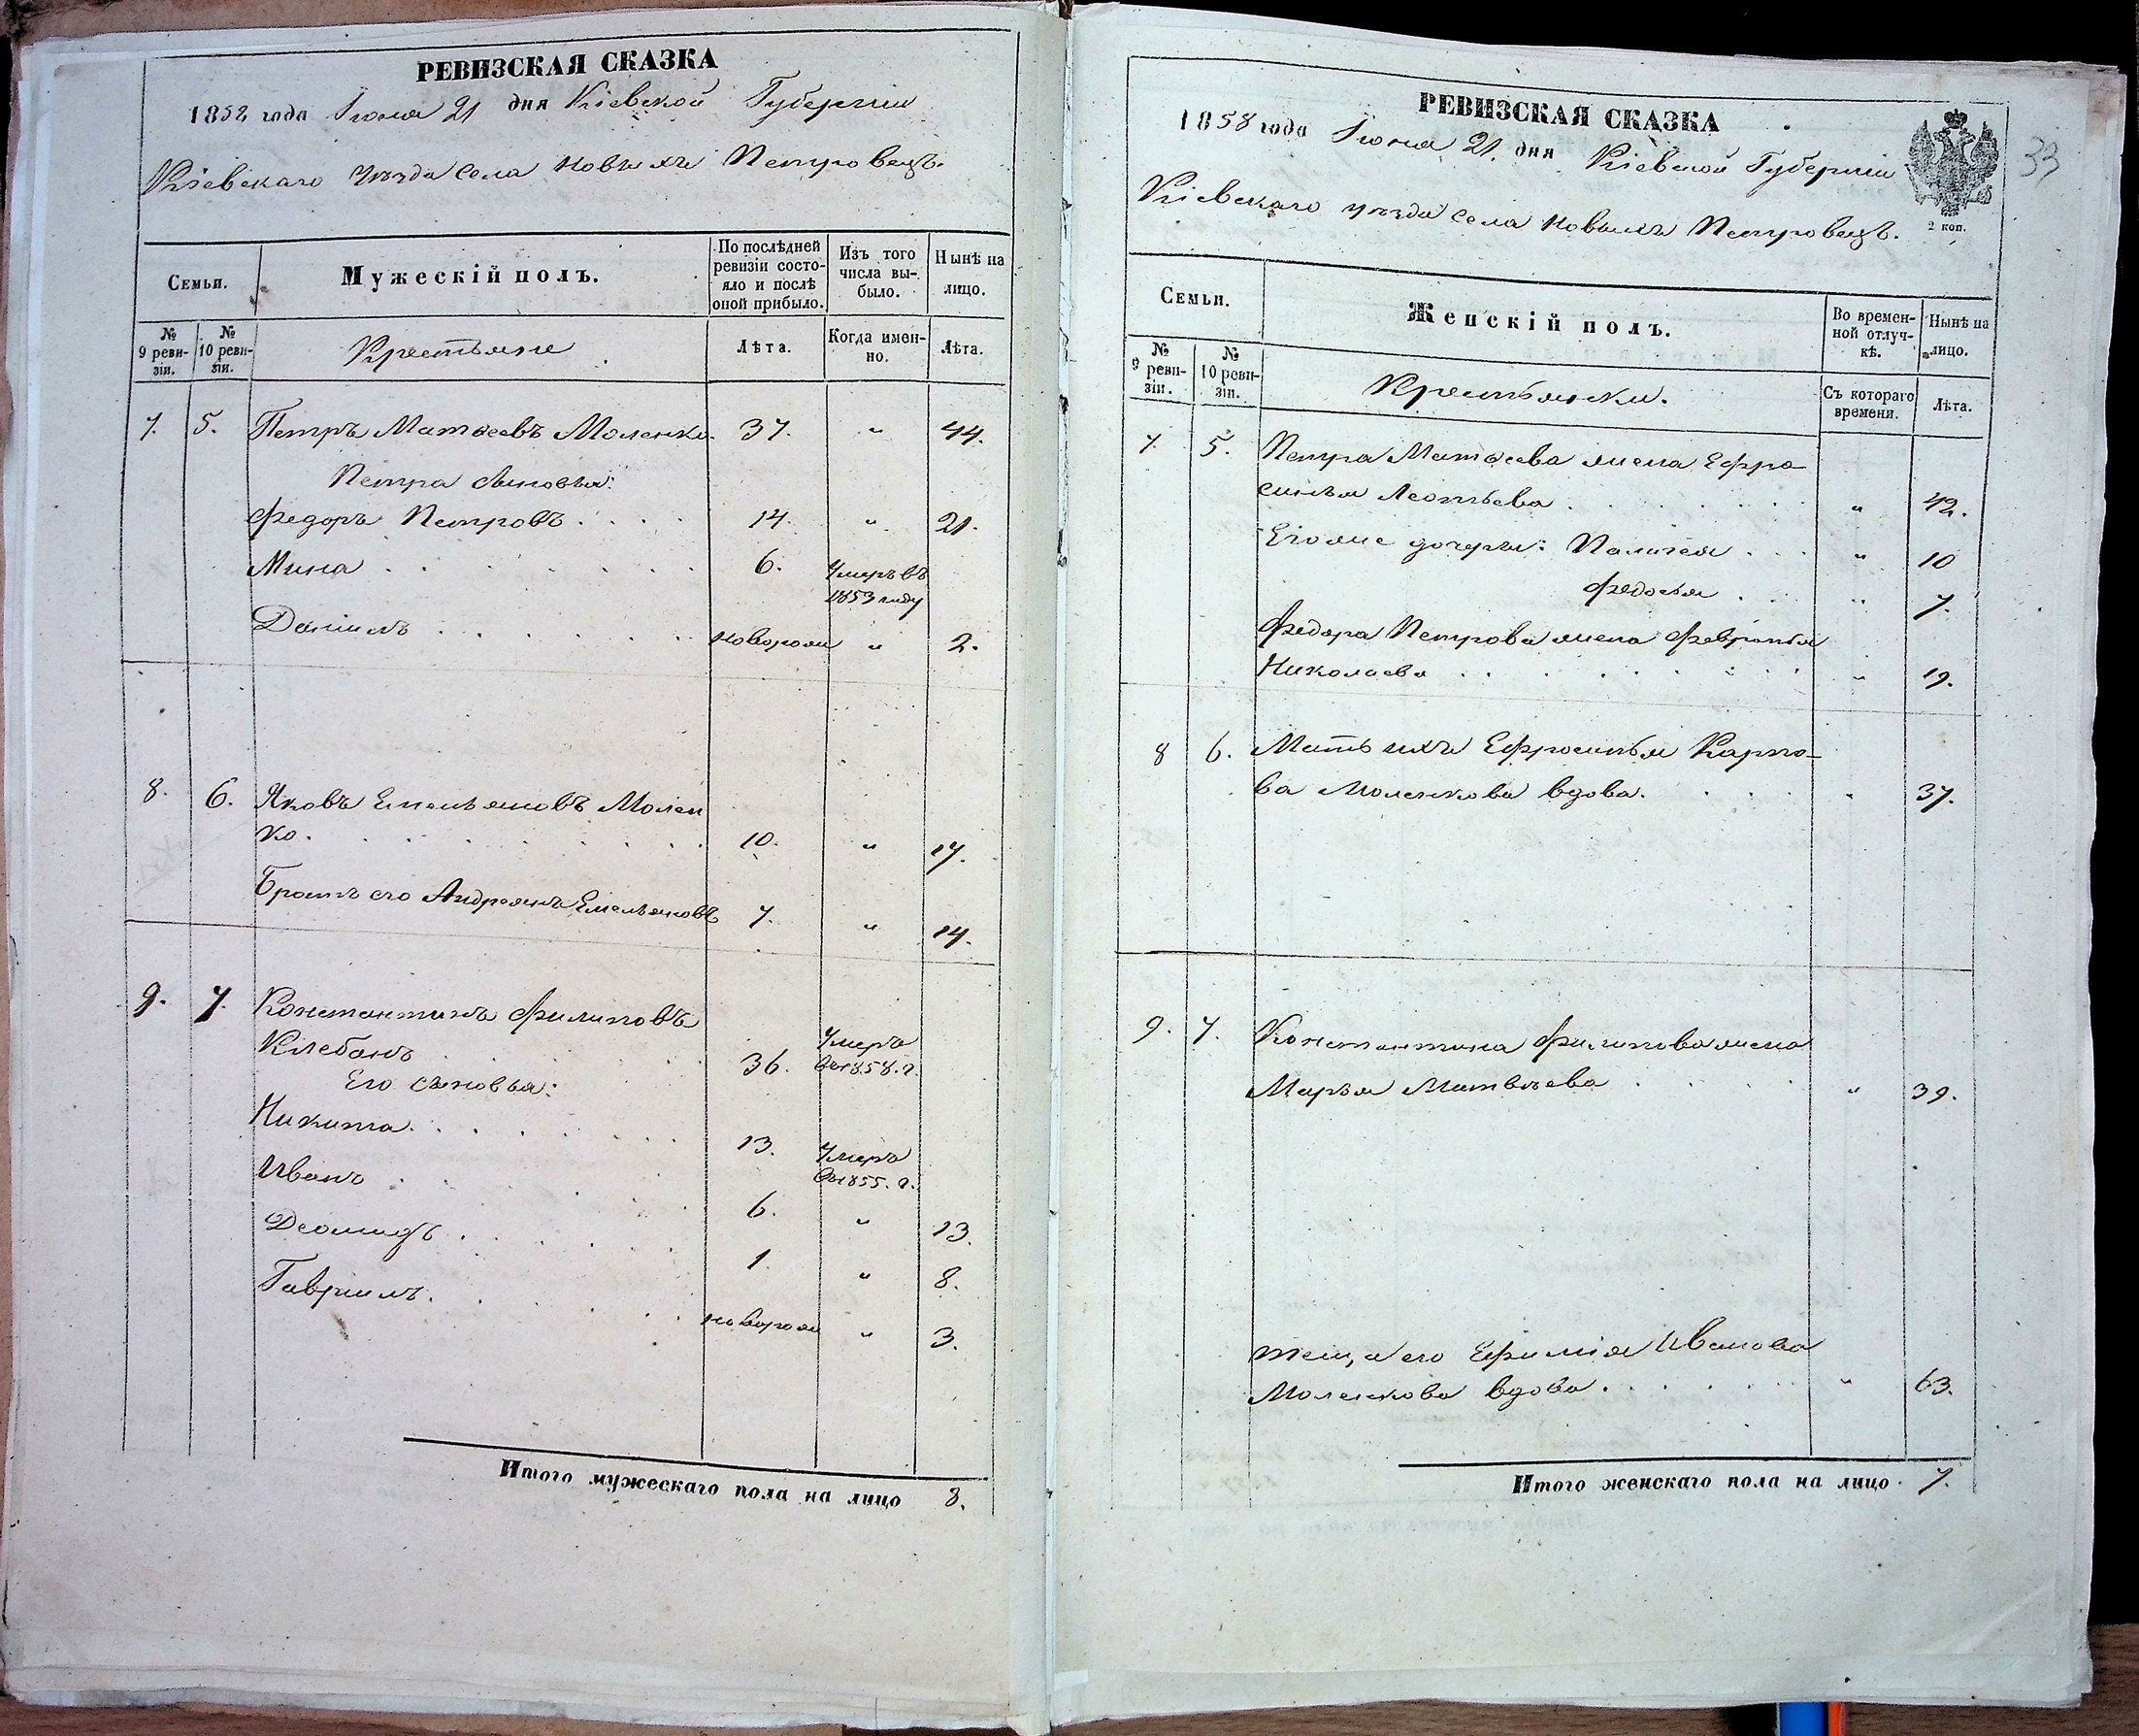 РЕВИЗСКАЯ СКАЗКА
1858 года Іюня 21 дня Кіевской Губерніи
Кіевскаго уѣзда Села Новыхъ Петровецъ.
Семьи.
Мужескій полъ.
По послѣдней ревизіи состояло и послѣ оной прибыло.
Изъ того числа выбыло.
Нынѣ на лицо.
№ 9 ревизіи.
№ 10 ревизіи.
Крестьяне
Лѣта.
Когда именно.
Лѣта.
7. 5. Петръ Матвеевъ Моленко. 37. " 44.
Петра сыновья:
Федоръ Петровъ . . . . 14. " 21.
Мина . . . . . . . 6. Умеръ въ 1853 году
Даніилъ . . . . . . новорож " 2.
8. 6. Яковъ Емельяновъ Молен
ко. . . . . . . . . 10. " 17.
Братъ его Андреянъ Емельяновъ 7. " 14.
9. 7. Константинъ Филиповъ
Клебанъ . . . . . 36. Умеръ въ 1858. г.
Его сыновья:
Никита. . . . . . . 13. Умеръ въ 1855. г.
Иванъ . . . . . 6. " 13.
Деомидъ . . . . . . 1. " 8.
Гавріилъ. . . . . . новорож " 3.
Итого мужескаго пола на лицо 8.
РЕВИЗСКАЯ СКАЗКА
33
1858 года Іюня 21. дня Кіевской Губерніи
Кіевскаго уѣзда Села Новыхъ Петровецъ.
2 коп.
Семьи.
Женскій полъ.
Во временной отлучкѣ.
Нынѣ на лицо.
№ 9 ревизіи.
№ 10 ревизіи.
Крестьянки.
Съ котораго времени.
Лѣта.
7. 5. Петра Матвеева жена Ефро-
синья Леонтьева . . . . . . " 42.
Его же дочери: Палагея . . . " 10
Федосья . . . " 7.
Федора Петрова жена Февронья
Николаева . . . . . . . " 19.
8 6. Мать ихъ Ефросинья Карпо-
ва Моленкова вдова. . . . . " 37.
9. 7. Константина Филипова жена
Марья Матвѣева . . . . " 39.
теща его Ефимія Иванова
Моленкова вдова. . . . . . " 63.
Итого женскаго пола на лицо. 7.